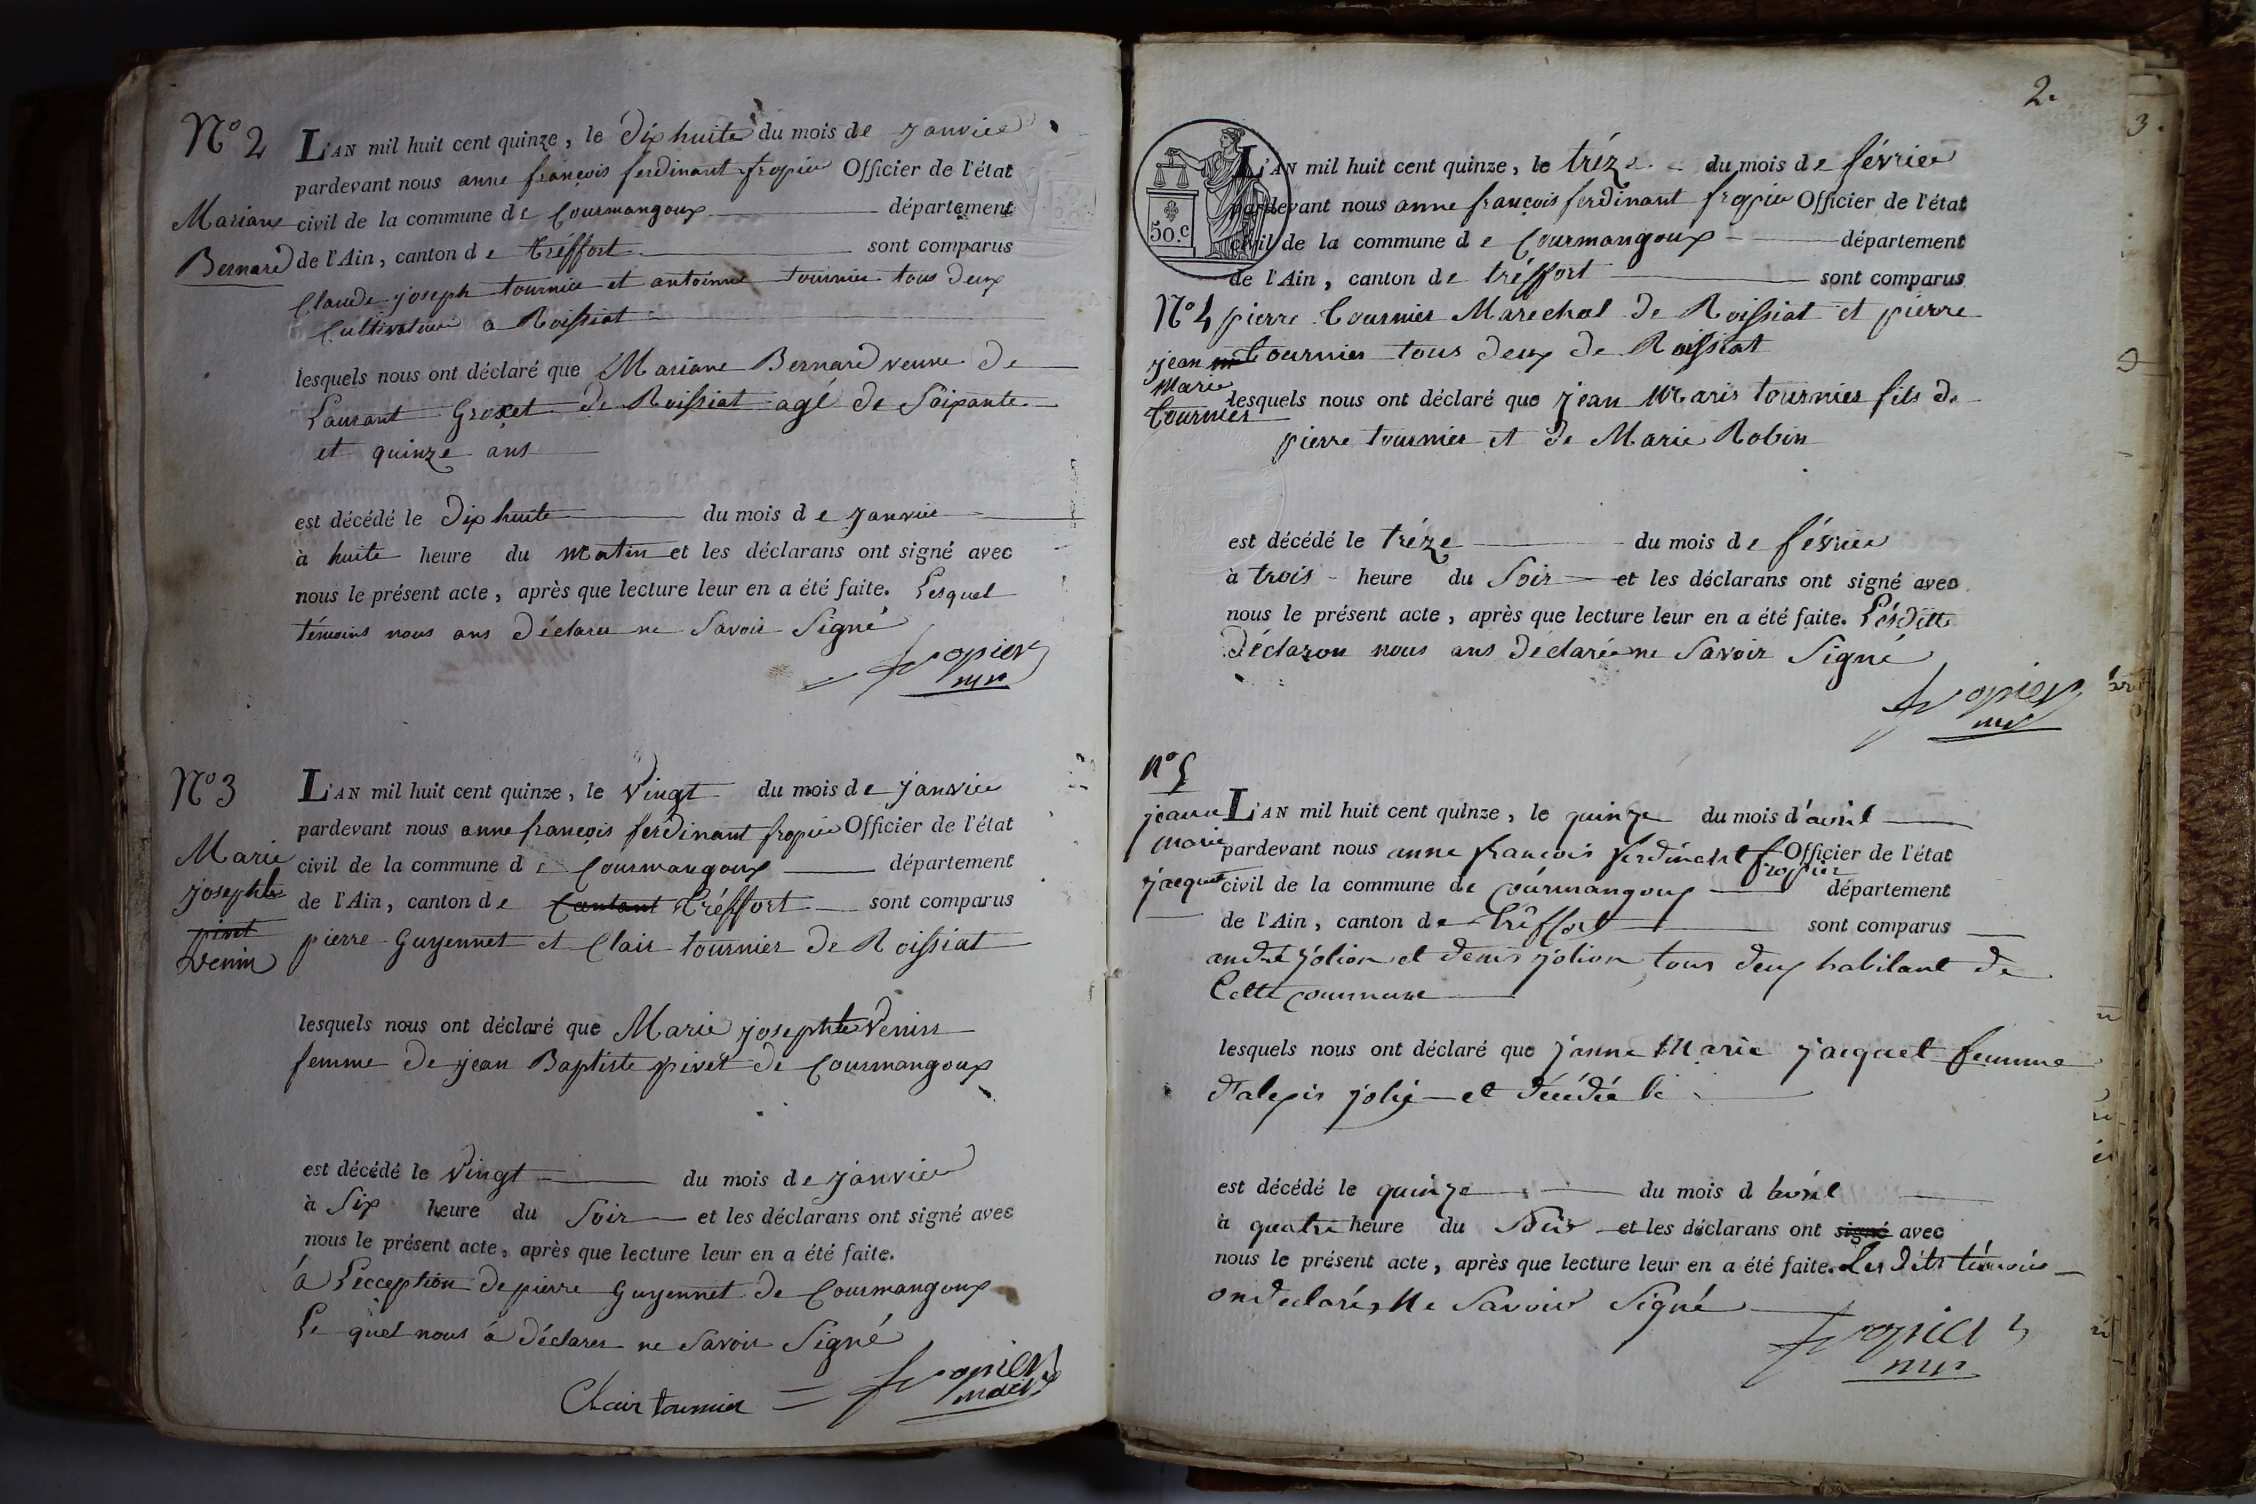 N° 2
Mariane
Bernard
L'AN mil huit cent quinze, le dix huite du mois de janvier
pardevant nous anne françois ferdinant fropier Officier de l'état
civil de la commune de Courmangoux département
de l'Ain, canton de tréffort sont comparus
Claude joseph tournier et antoinne tournier tous deux
Cultivateur a Roissiat
lesquels nous ont déclaré que Mariane Bernard veuve de
Laurant Groxet de Roissiat agé de Soixante
et quinze ans
est décédé le dix huite du mois de janvier
à huite heure du matin et les déclarans ont signé avec
nous le présent acte, après que lecture leur en a été faite. Lesquel
témoins nous ans déclarer ne Savoir Signé
fropier
N° 3
Marie
josephte
pivet
Venin
L'AN mil huit cent quinze, le Vingt du mois de janvier
pardevant nous anne françois ferdinant fropier Officier de l'état
civil de la commune de Courmangoux département
de l'Ain, canton de Cantant tréffort sont comparus
pierre Guyennet et Clair tournier de Roissiat
lesquels nous ont déclaré que Marie josephte Venin
femme de jean Baptiste pivet de Courmangoux
est décédé le Vingt du mois de janvier
à Six heure du Soir et les déclarans ont signé avec
nous le présent acte, après que lecture leur en a été faite.
á L'ecception de pierre Guyennet de Courmangoux
Le quel nous á déclarer ne Savoir Signé
Clair tournier fropier
2.
50.c
L'AN mil huit cent quinze, le tréze du mois de février
pardevant nous anne françois ferdinant fropier Officier de l'état
civil de la commune de Courmangoux département
de l'Ain, canton de tréffort sont comparus
N° 4
jean
Marie
tournier
pierre tournier Marechal de Roissiat et pierre
tournier tous deux de Roissiat
lesquels nous ont déclaré que jean Marie tournier fils de
pierre tournier et de Marie Robin
est décédé le tréze du mois de février
à trois heure du Soir et les déclarans ont signé avec
nous le présent acte, après que lecture leur en a été faite. Lésditte
déclaron nous ans déclarée ne Savoir Signé
fropier
N° 5
jeanne
marie
jacquet
L'AN mil huit cent quinze, le quinze du mois d'avril
pardevant nous anne françois ferdinent fropier Officier de l'état
civil de la commune de Courmangoux département
de l'Ain, canton de tréffort sont comparus
andré jolion et denis jolion tous deux habitant de
Cette commune
lesquels nous ont déclaré que janne Marie jacquet femme
d'alexis et décédée le
est décédé le quinze du mois d avril
à quatre heure du Soir et les déclarans ont signé avec
nous le présent acte, après que lecture leur en a été faite. Les dits témoins
on declaré, Ne Savoir Signé
fropier
3.